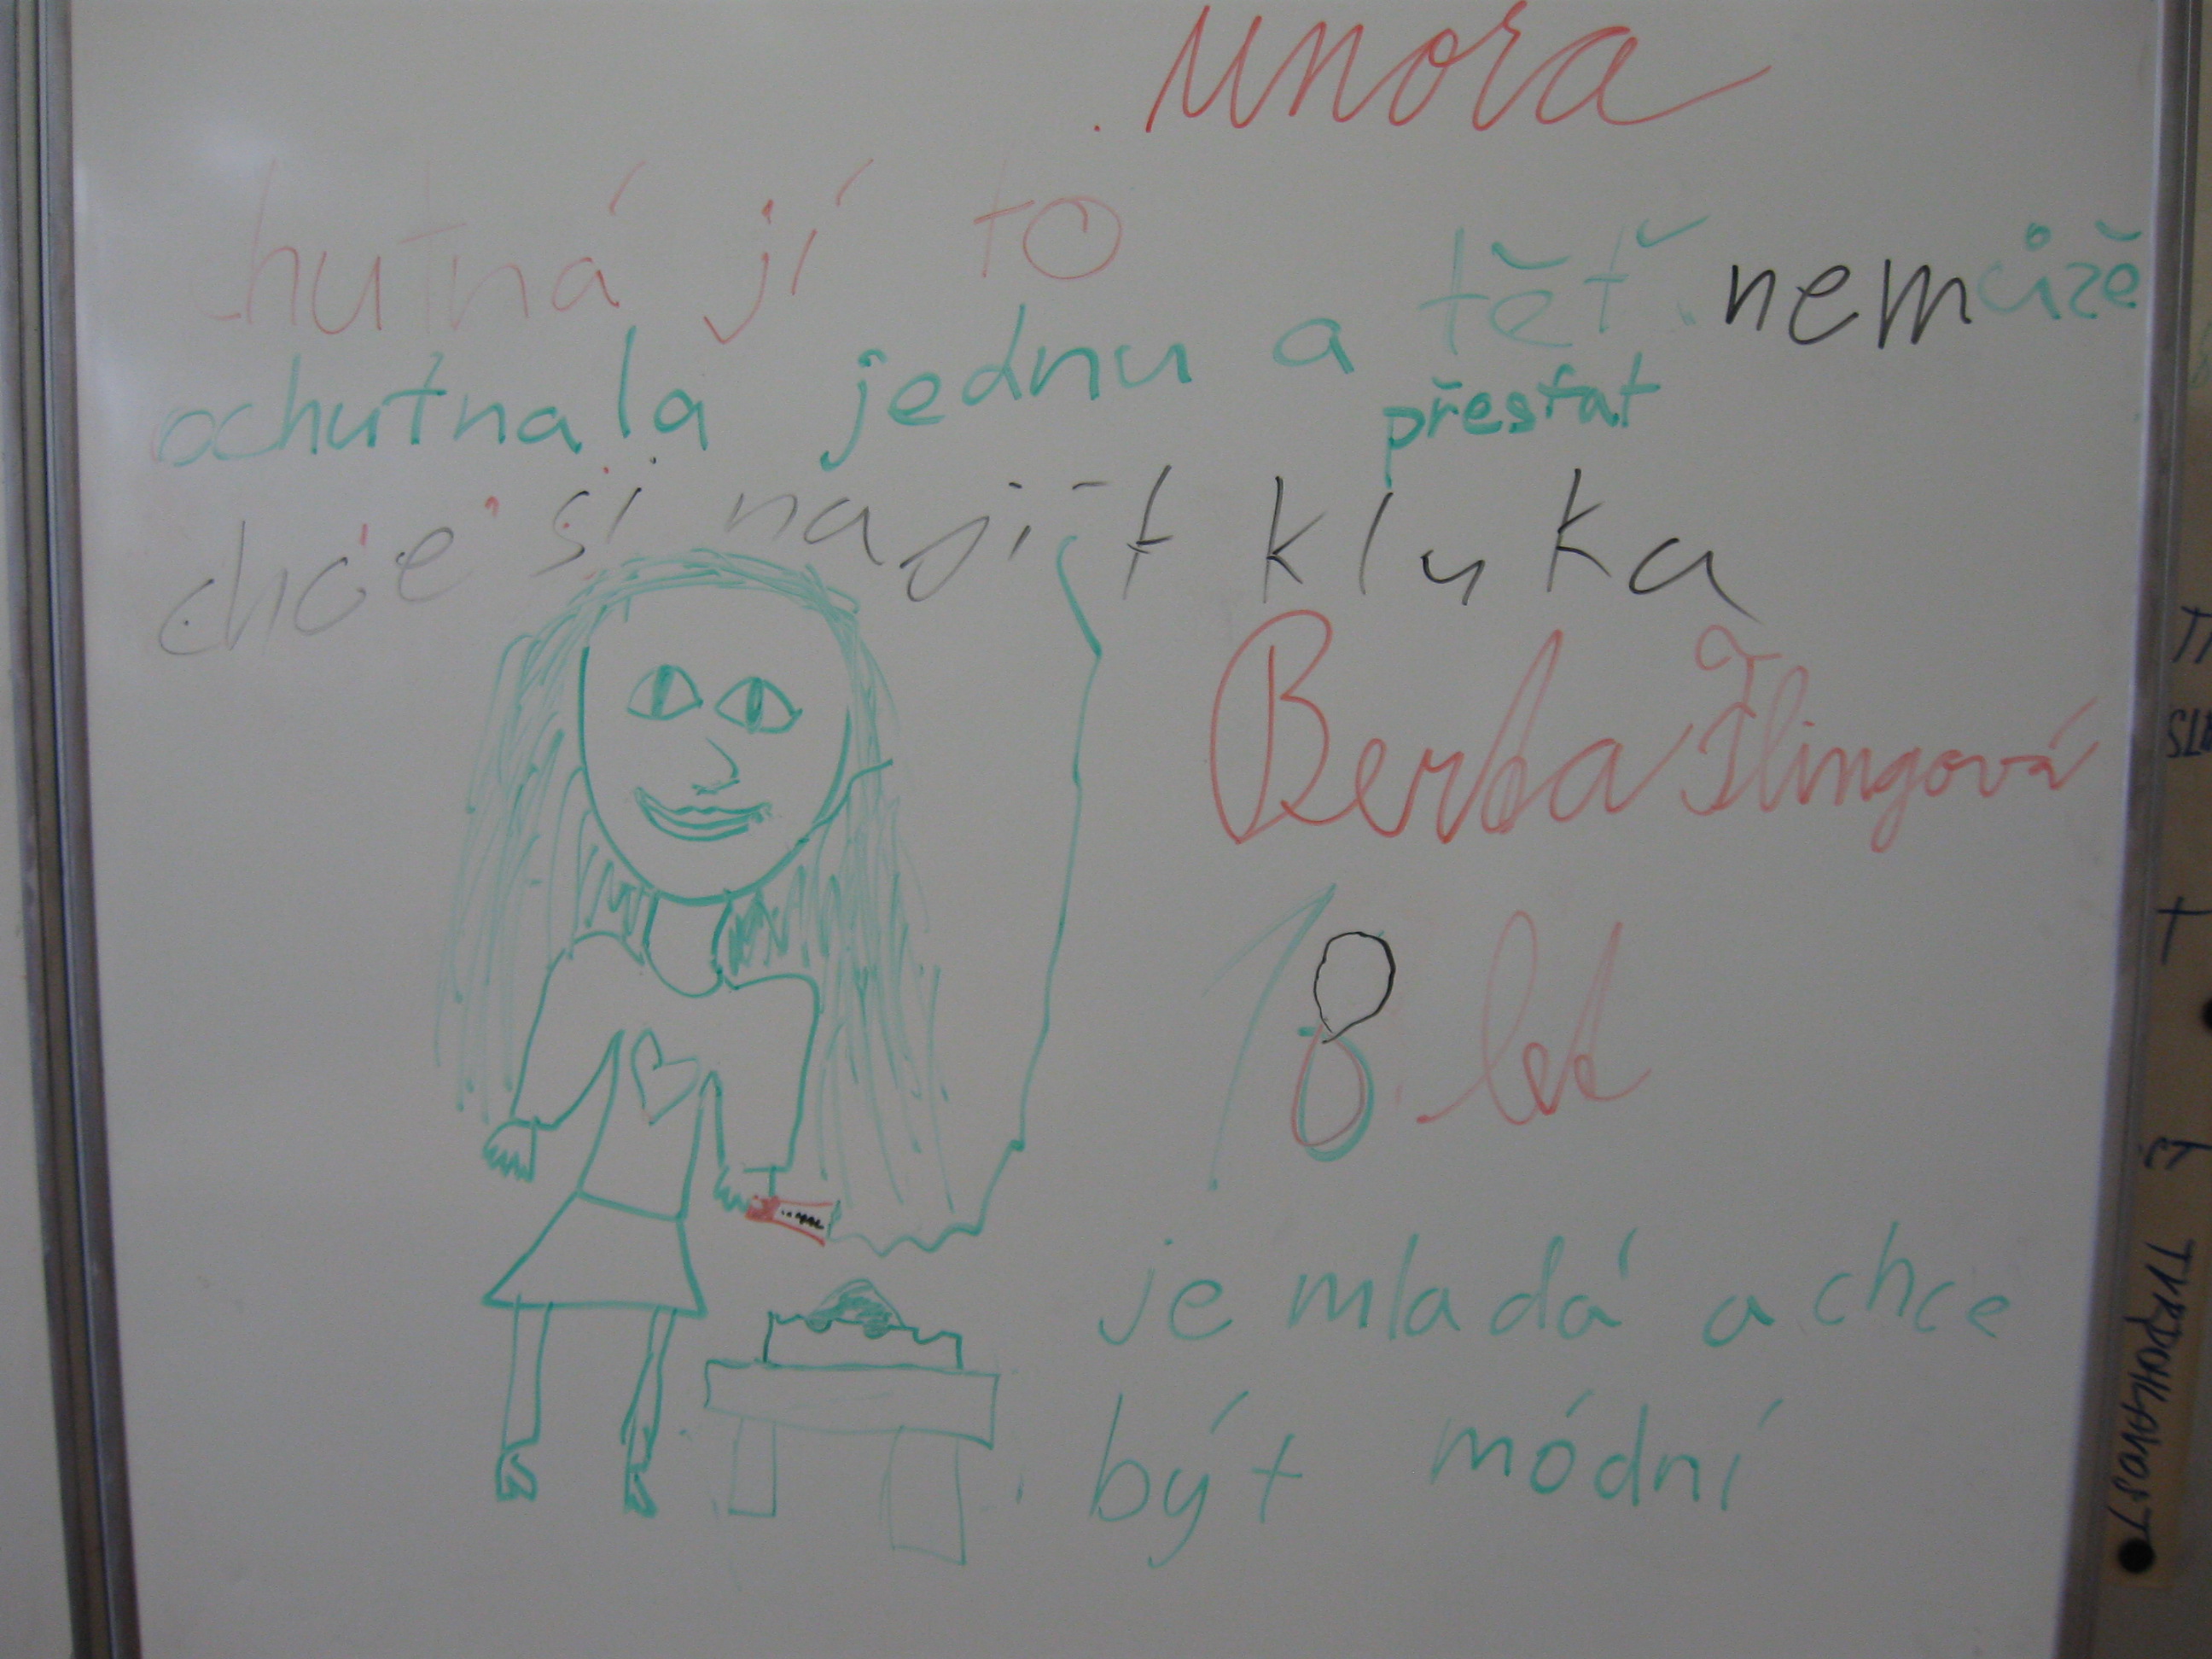 února
chutná jí to
ochutnala jednu a těť nemůže
přestat
chce si najít kluka
Berta Flingová
18 let
je mladá a chce
být módní
TVRDOHLAVOST